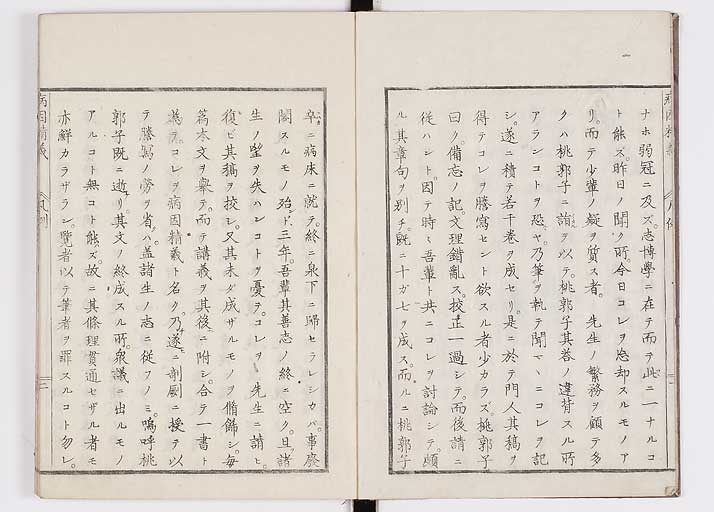 ナホ弱冠ニ及ズ。志博學ニ在テ而テ此ニ一ナルコ
ト能ズ。昨日ノ聞ク所、今日コレヲ忘却スルモノア
リ。而テ少輩ノ疑ヲ質ス者。先生ノ繁務ヲ顧テ多
クハ桃郭子ニ詢ヲ以テ。桃郭子其答ノ違背スル所
アランコトヲ恐ヤ。乃筆ヲ執テ聞マヽニコレヲ記
シ。遂ニ積テ若干卷ヲ成セリ。是ニ於テ門人其稿ヲ
得テコレヲ謄寫セント欲スル者少カラズ。桃郭子
曰ク。備忘ノ記。文理錯亂ス。校正一過シテ。而後請ニ
從ハント。因テ時々吾輩ト共ニコレヲ討論シテ。頗
ル其章句ヲ別チ。既ニ十ガ七ヲ成ス。而ルニ桃郭子
病因精義
凡例
二
卒ニ病床ニ就テ。終ニ泉下ニ歸セラレシカバ。事廢
閣スルモノ殆ド三年。吾輩其善志ノ終ニ空ク。且諸
生ノ望ヲ失ハンコトヲ憂テ。コレヲ 先生ニ請ヒ。
復ビ其稿ヲ校シ。又其未ダ成ザルモノヲ脩飾シ。毎
篇本文ヲ擧テ。而テ講義ヲ其後ニ附シ。合テ一書ト
為テ。コレヲ病因精義ト名ク。乃遂ニ剞劂ニ授テ以
テ謄寫ノ勞ヲ省ハ。蓋諸生ノ志ニ従フノミ。嗚呼桃
郭子既ニ逝リ。其文ノ終成スル所。衆議ニ出ルモノ
アルコト無コト能ズ。故ニ其條理貫通セザル者モ
亦鮮カラザラン。覽者以テ筆者ヲ罪スルコト勿レ。